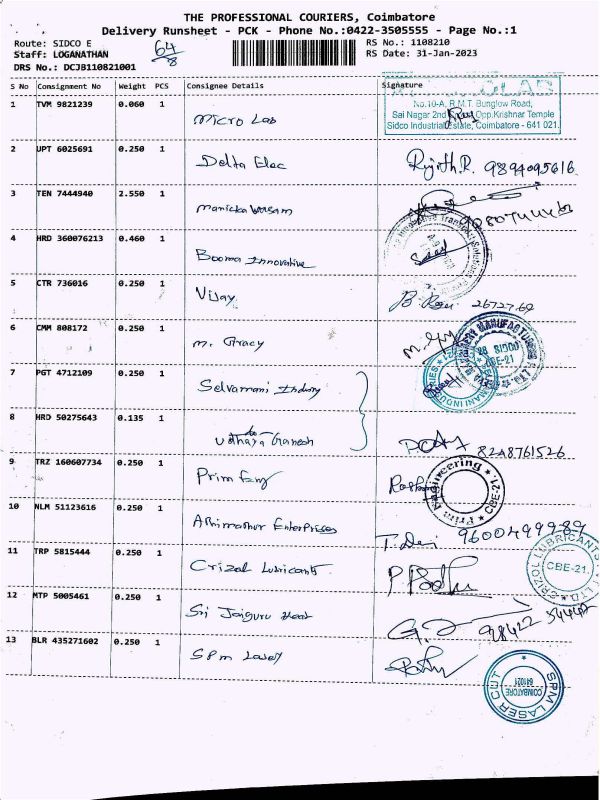 THE PROFESSIONAL COURIERS, Coimbatore
Delivery Runsheet - PCK - Phone No.:0422-3505555 - Page No.:1
Route: SIDCO E
Staff: LOGANATHAN
DRS No.: DCJB110821001
64/8
RS No.: 1108210
RS Date: 31-Jan-2023
S No Consignment No Weight PCS Consignee Details Signature
1 TVM 9821239 0.060 1 Micro Lab
No.10-A, R.M.T. Bunglow Road,
Sai Nagar 2nd Opp.Krishnar Temple
Sidco Industrial Estate, Coimbatore - 641 021.
2 UPT 6025691 0.250 1 Delta Elec Rujith.R. 9894095616.
3 TEN 7444940 2.550 1 Manickavasam
4 HRD 360076213 0.460 1 Booma Innovative
5 CTR 736016 0.250 1 Vijay 26727 69
6 CMM 808172 0.250 1 M. Gracy
28 SIDCO
CBE-21
7 PGT 4712109 0.250 1 Selvamani Industry
8 HRD 50275643 0.135 1 Udhaya Ganesh 8248761526
9 TRZ 160607734 0.250 1 Prim Eng
Prim Engineering CBE-21
10 NLM 51123616 0.250 1 Abhimathur Enterprises T. Devi 9600499989
11 TRP 5815444 0.250 1 Crizal Lubricants
CRIZOL LUBRICANTS CBE-21
12 MTP 5005461 0.250 1 Sri Jaiguru Heat 98422 34442
13 BLR 435271602 0.250 1 SPM Laser
SPM LASER CUT
COIMBATORE
641021